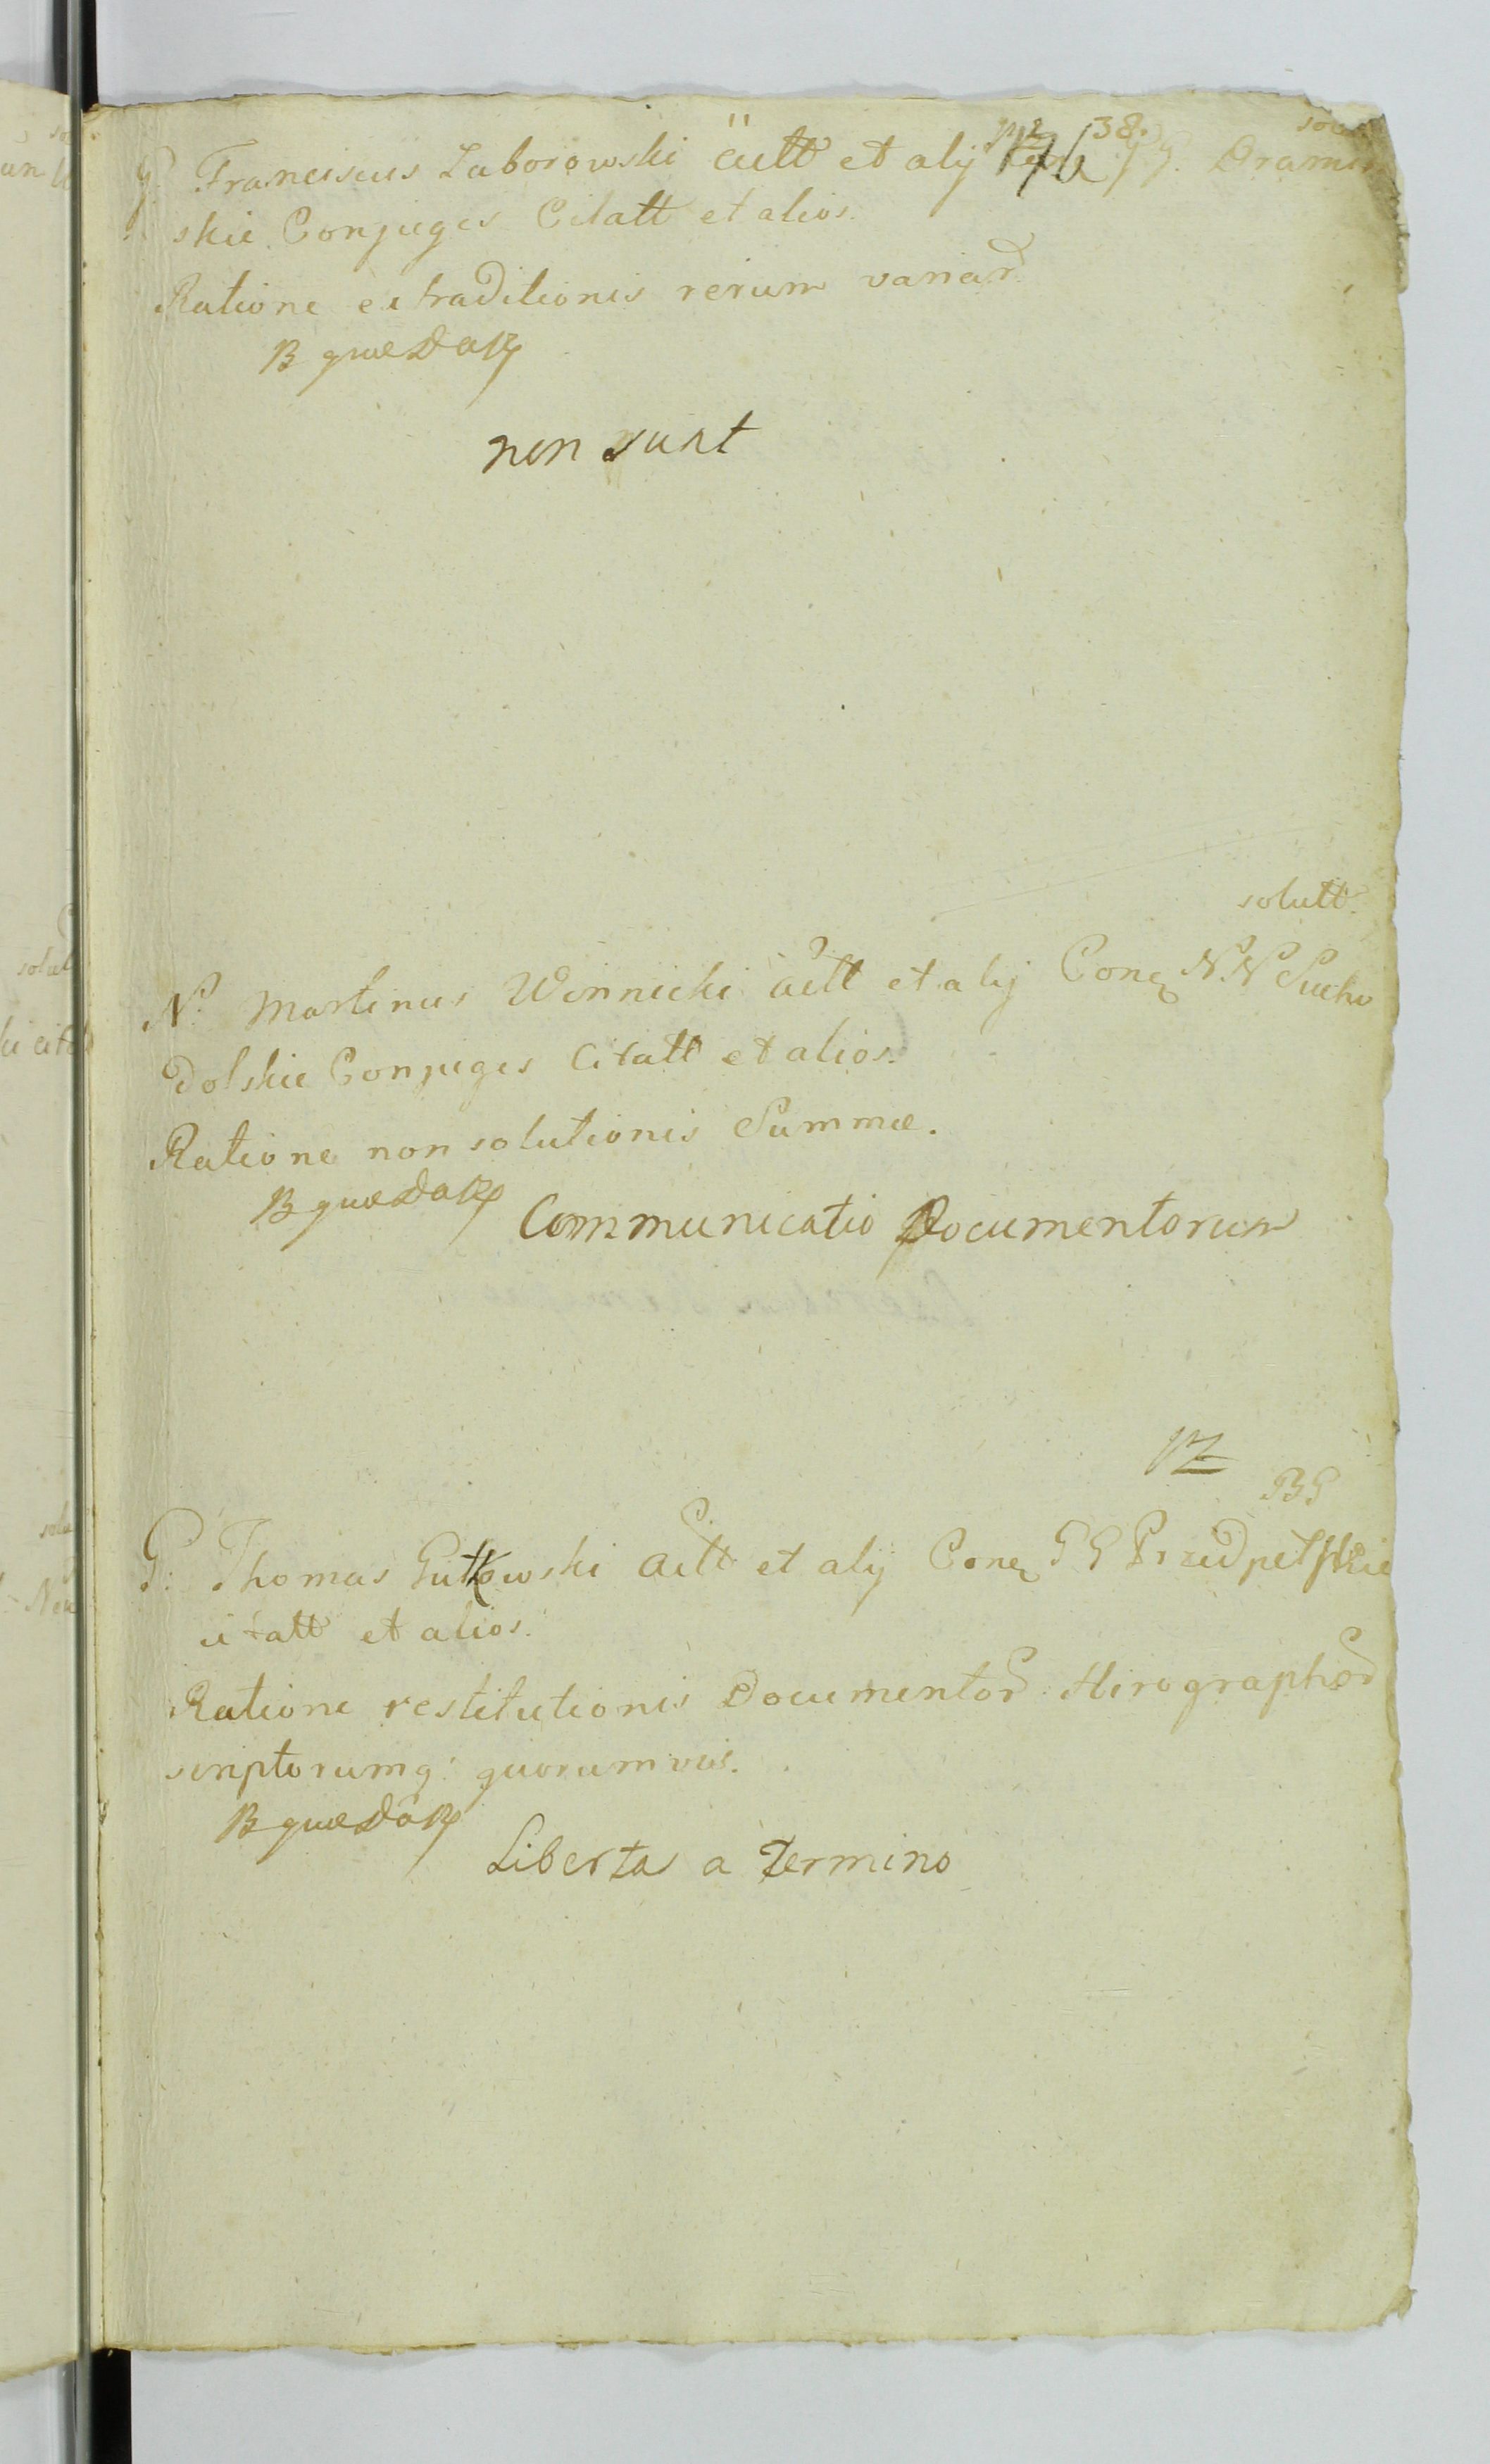 38.
G. Franciscus Zaborowski actt et alij G. G. Dramin
skie Conjuges Citatt et alios.
Ratione extraditionis rerum variar
B quae Dato
non sunt
solutt.
N. Martinus Winnicki actt et alij Conq N. N Sucho
dolskie Conjuges Citatt et alios.
Ratione non solutionis Summae.
B quae Dato
Communicatio Documentorum
G: Thomas Gutkowski actt et alij Conq G G Przedpelskie
citatt et alios.
Ratione restitutionis Documentor Hirographor
scriptorumq: quorumvis.
B quae Dato
Libertas a Termino